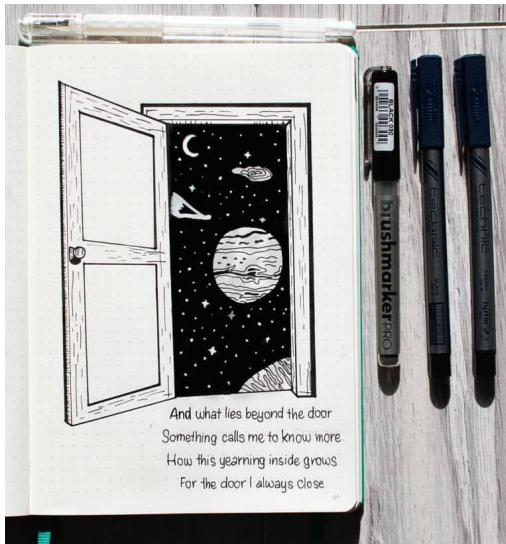 And what lies beyond the door
Something calls me to know more
How this yearning inside grows
For the door I always close
BLACK 030
brushmarker PRO
technic
technic